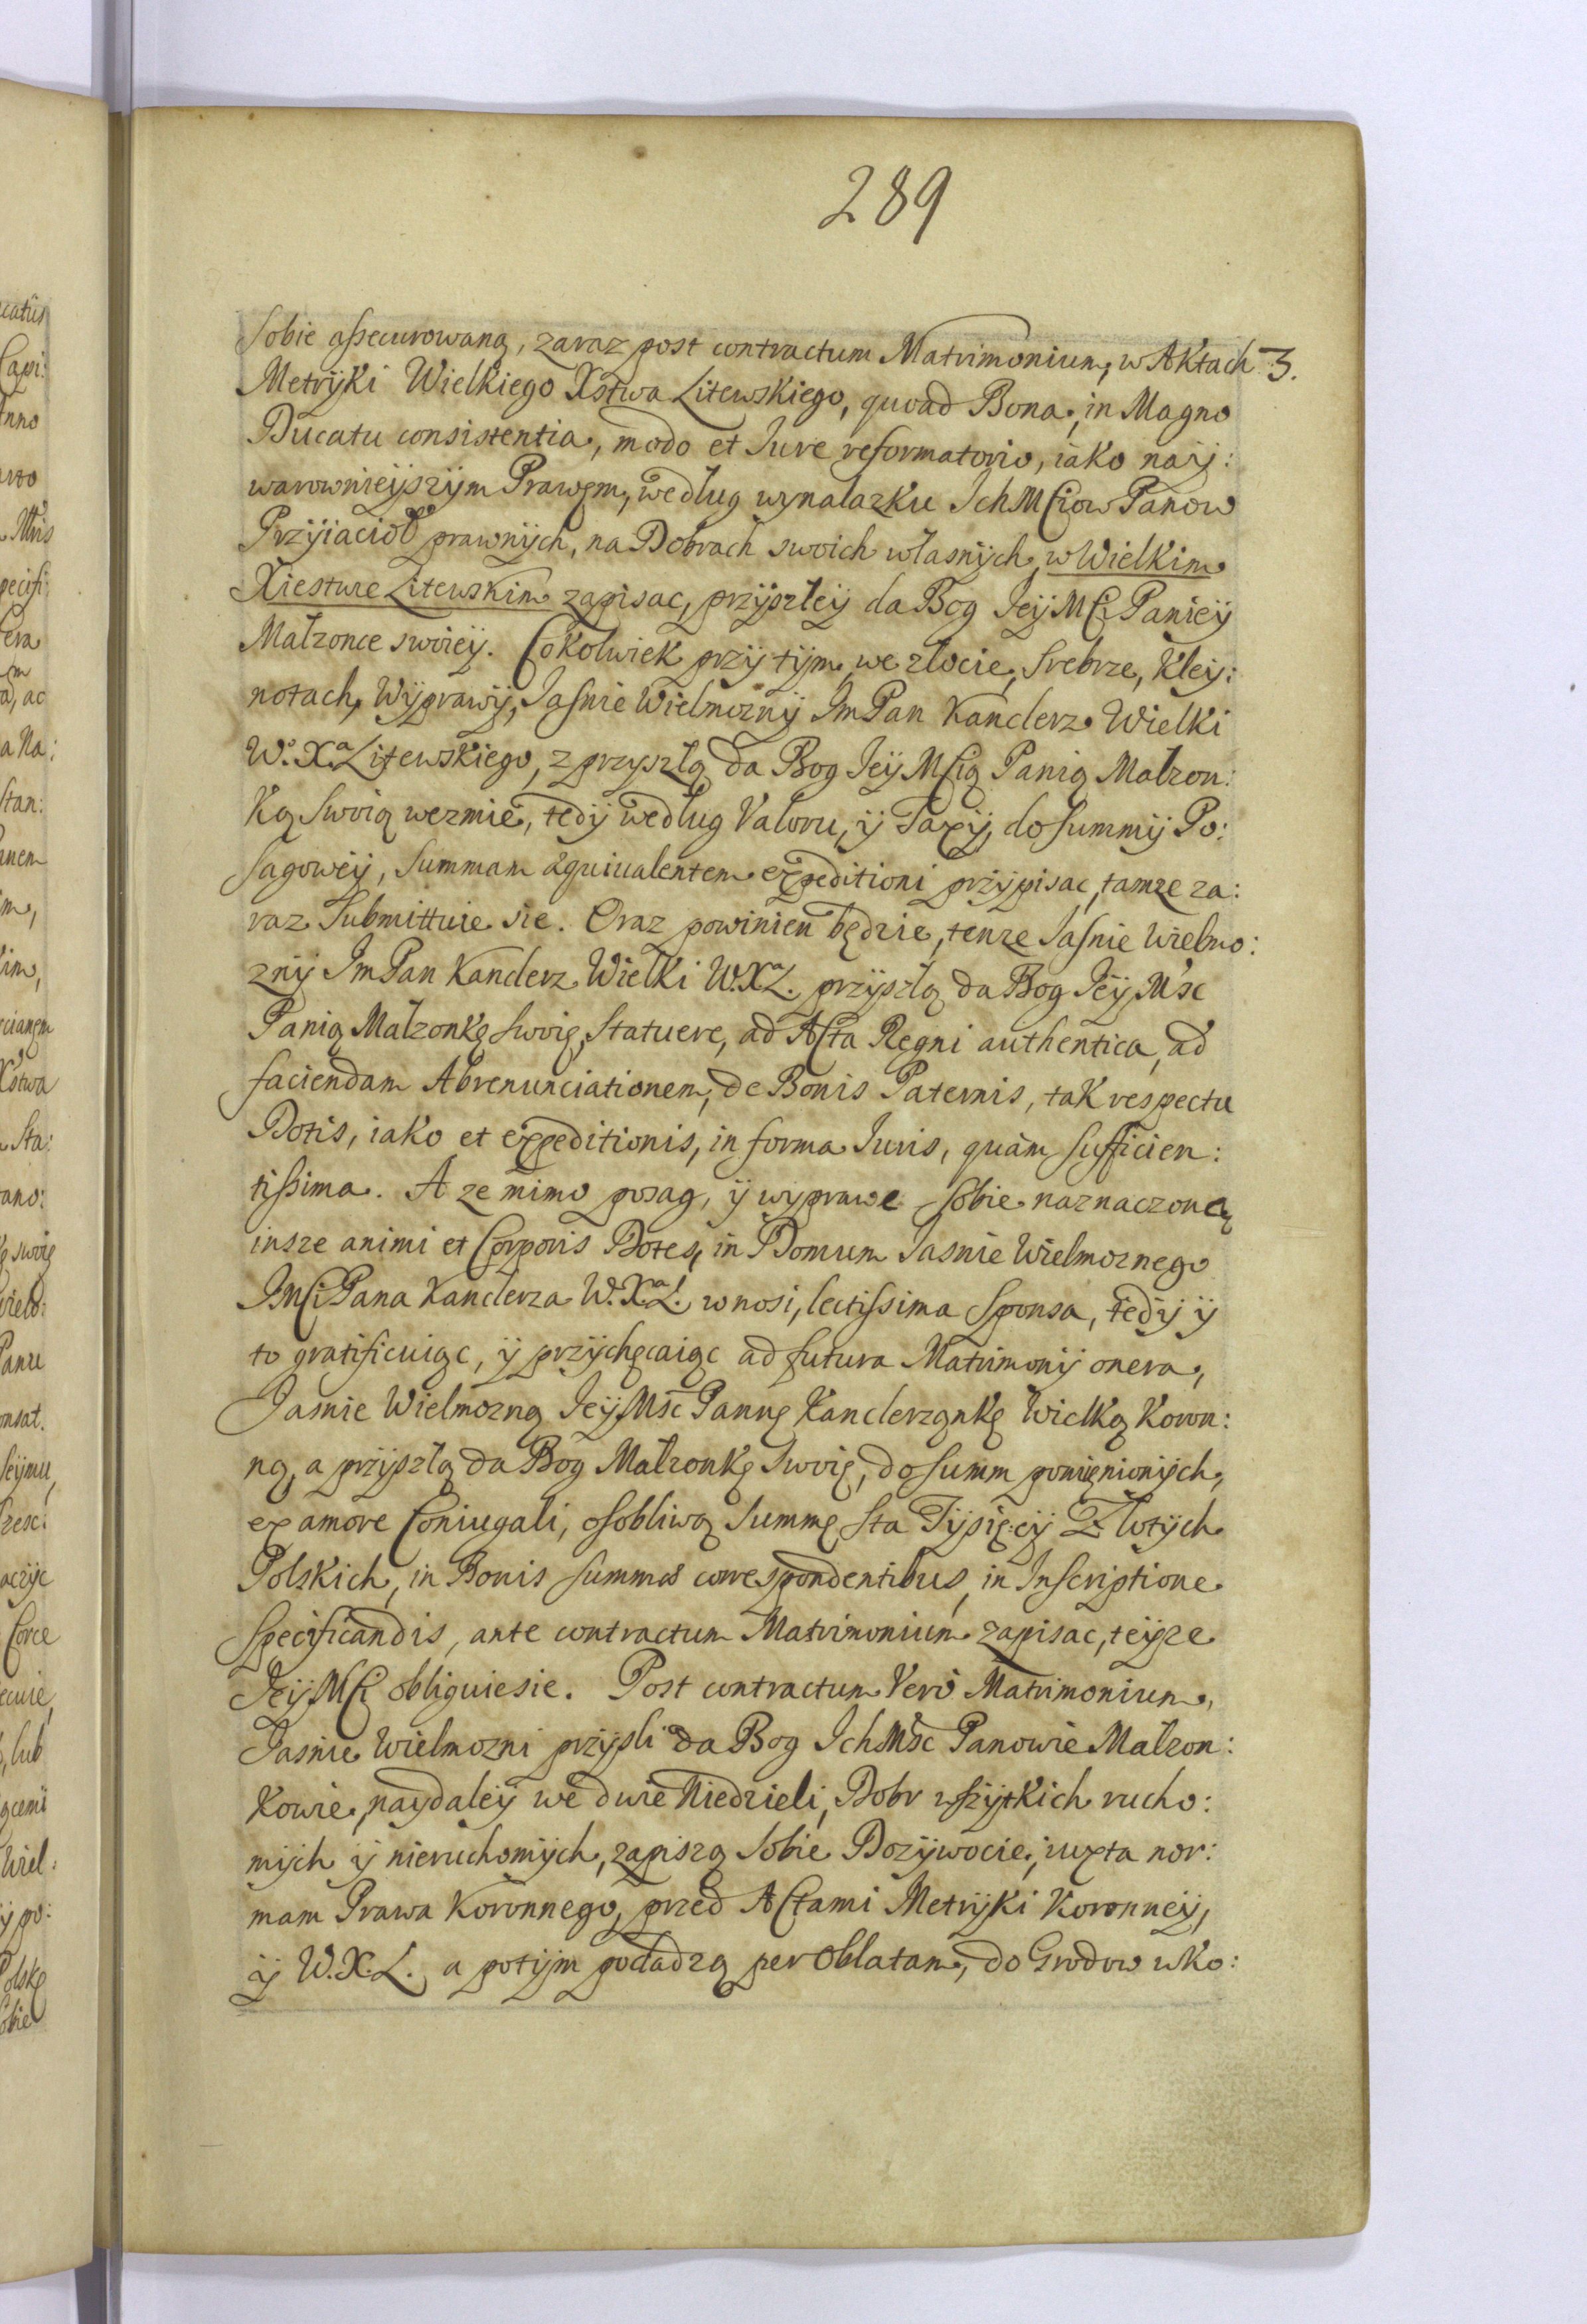 289
Sobie assecurowaną, zaraz post contractum Matrimonium, w Aktach 3.
Metryki Wielkiego Xstwa Litewskiego, quoad Bona, in Magno
Ducatu consistentia, modo et Iure reformatorio, iako naÿ:
warownieÿszÿm Prawem, według wynalazku IchMCiow Panow
Przÿiacioł prawnÿch, na Dobrach swoich własnÿch, w Wielkim
Xiestwie Litewskim zapisac, przÿszłeÿ da Bog JeÿMCi Panieÿ
Małzonce swoieÿ. Cokolwiek przÿ tÿm, we złocie, Srebrze, Kleÿ:
notach, Wÿprawÿ, Jasnie Wielmoznÿ ImPan Kanclerz Wielki
Wo. Xa Litewskiego, z przyszłą da Bog JeÿMCią Panią Małzon:
Ką Swoią wezmie, tedÿ według Valoru, ÿ Taxÿ, do Summÿ Po:
sagoweÿ, Summam æquiualentem expeditioni przÿpisac, tamze za:
raz Submittuie sie. Oraz powinien będzie, tenze Jasnie Wielmo:
znÿ ImPan Kanclerz Wielki W.Xa L. przÿszłą da Bog JeÿMsc
Panią Małzonkę Swoię, Statuere, ad Acta Regni authentica, ad
faciendam Abrenunciationem, de Bonis Paternis, tak respectu
Dotis, iako et expeditionis, in forma Iuris, quàm Sufficien:
tissima. A ze mimo posag, ÿ wyprawe Sobie naznaczoną
insze animi et Corporis Dotes, in Domum Jasnie Wielmoznego
JMCi Pana Kanclerza W.Xa L. wnosi, lectissima Sponsa, tedÿ ÿ
to gratificuiąc, ÿ przÿchęcaiąc ad futura Matrimonij onera,
Jasnie Wielmozną JeÿMsc Pannę Kanclerzankę Wielką Koron:
ną, a przÿszłą da Bog Małzonkę Swoię, do Summ pomienionÿch,
ex amore Coniugali, osobliwą Summę Sta Tÿsięcÿ Złotÿch
Polskich, in Bonis Summæ correspondentibus, in Inscriptione
Specificandis, ante contractum Matrimonium zapisac, teÿze
JeÿMCi obliguiesie. Post contractum Verò Matrimonium,
Jasnie Wielmozni przÿsli da Bog IchMsc Panowie Małzon:
Kowie, naydaleÿ we dwie Niedzieli, Dobr wszÿtkich rucho:
mÿch ÿ nieruchomÿch, zapiszą Sobie Dozÿwocie, iuxta nor:
mam Prawa Koronnego, przed Actami Metrÿki Koronneÿ,
ÿ W.X.L. a potÿm podadzą per Oblatam, do Grodow w Ko: